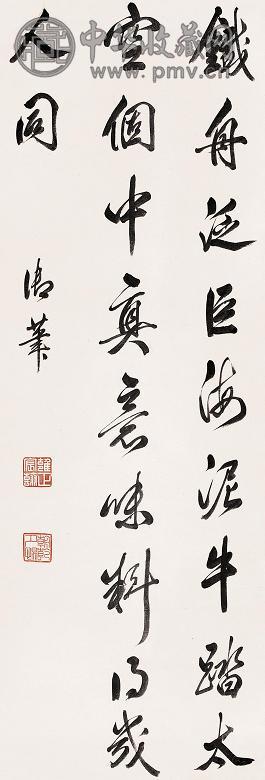 鐵舟泛巨海泥牛踏太
空個中真意味料得幾
人同
御筆
雍正宸翰
中华收藏网
www.pmv.cn